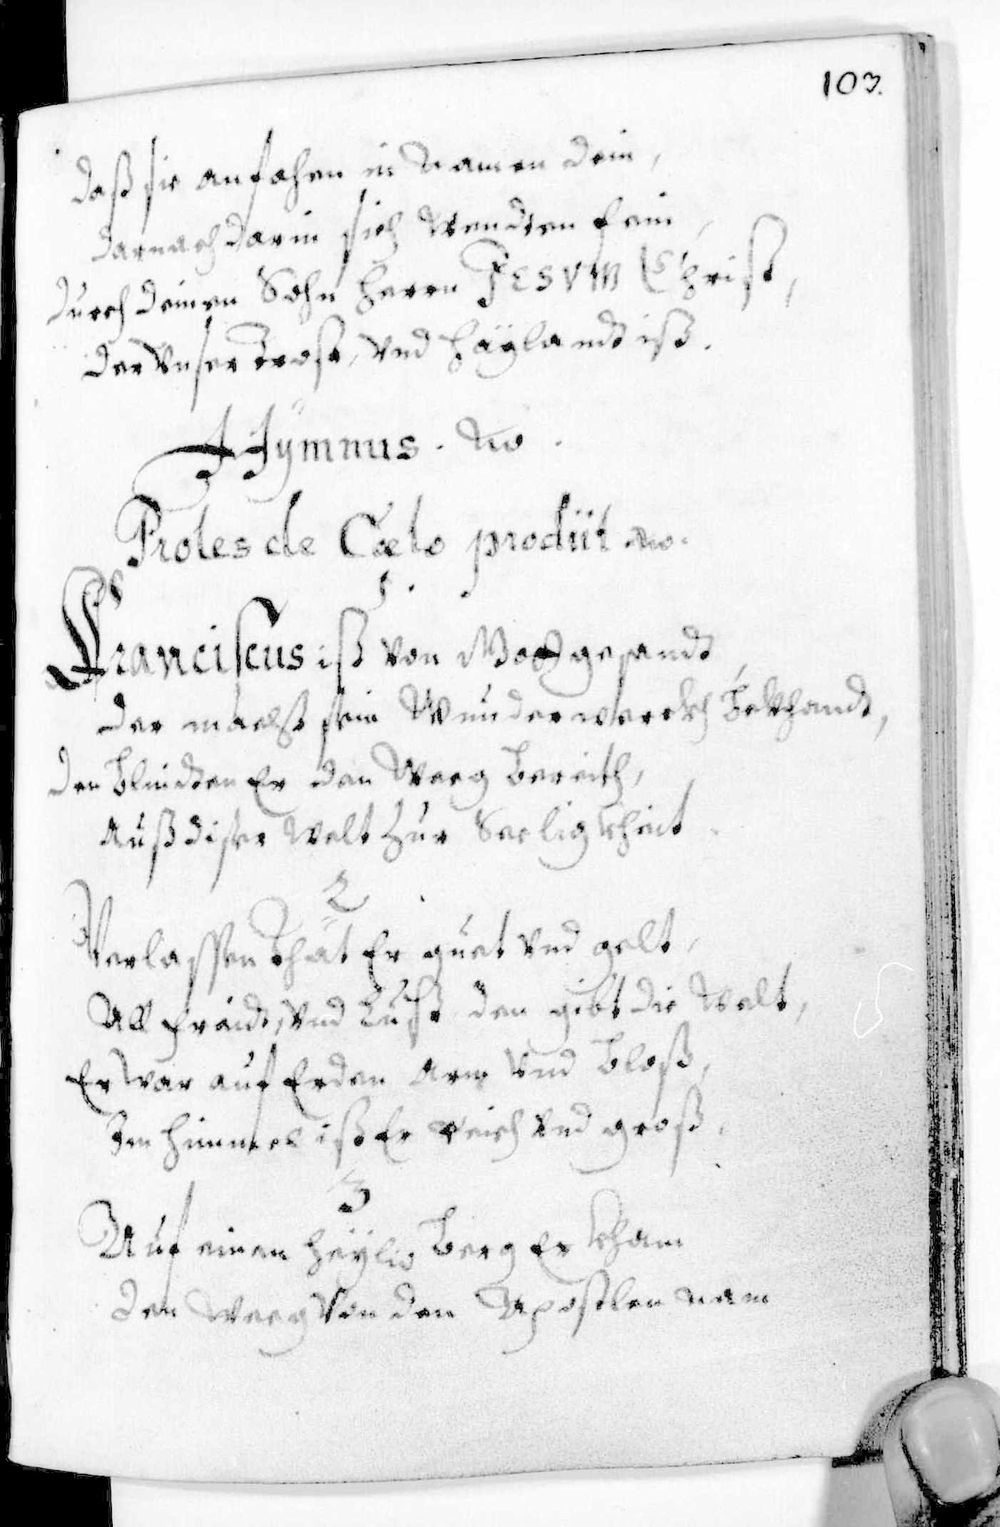 103.
daß sie anfahen in Namen dein,
darnach darin sich wendten fein,
durch deinen Sohn Herrn JESVM Christ,
der Vnser trost, vnd Häylandt ist.
Hÿmnus.
Proles de Cœlo prodiit
1.
Franciscus ist von Gott gesandt,
der macht sein Wunderwerckh bekhandt,
den blindten Er den Weeg bereith,
Auß diser Welt zur Seeligkheit.
2
Verlassen that Er guet vnd gelt,
All freidt, vnd Lust den gibt die Welt,
Er war auf Erden arm vnd bloß,
Im Himmel ist Er reich vnd groß.
3
Auf einen heÿlig berg Er kham
den Weeg von den Apostlen nam